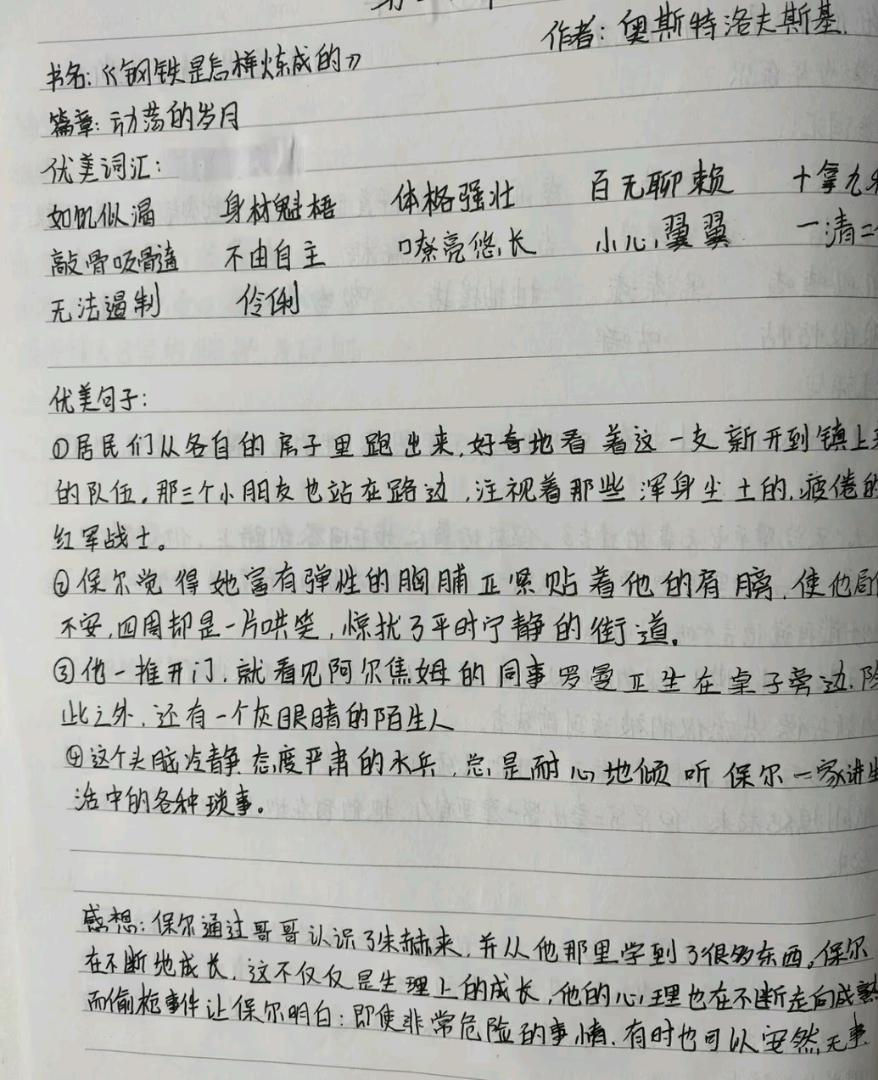 作者：奥斯特洛夫斯基
书名：《钢铁是怎样炼成的》
篇章：动荡的岁月
优美词汇：
如饥似渴 身材魁梧 体格强壮 百无聊赖 十拿九
敲骨吸髓 不由自主 嘹亮悠长 小心翼翼 一清二
无法遏制 伶俐
优美句子：
①居民们从各自的房子里跑出来，好奇地看着这一支新开到镇上
的队伍。那三个小朋友也站在路边，注视着那些浑身尘土的，疲倦的
红军战士。
②保尔觉得她富有弹性的胸脯正紧贴着他的肩膀，使他局
不安，四周却是一片哄笑，惊扰了平时宁静的街道。
③他一推开门，就看见阿尔焦姆的同事罗曼正坐在桌子旁边，除
此之外，还有一个灰眼睛的陌生人
④这个头脑冷静态度严肃的水兵，总是耐心地倾听保尔一家讲生
活中的各种琐事。
感想：保尔通过哥哥认识了朱赫来，并从他那里学到了很多东西。保尔
在不断地成长，这不仅仅是生理上的成长，他的心理也在不断走向成熟
而偷枪事件让保尔明白：即使非常危险的事情，有时也可以安然无事